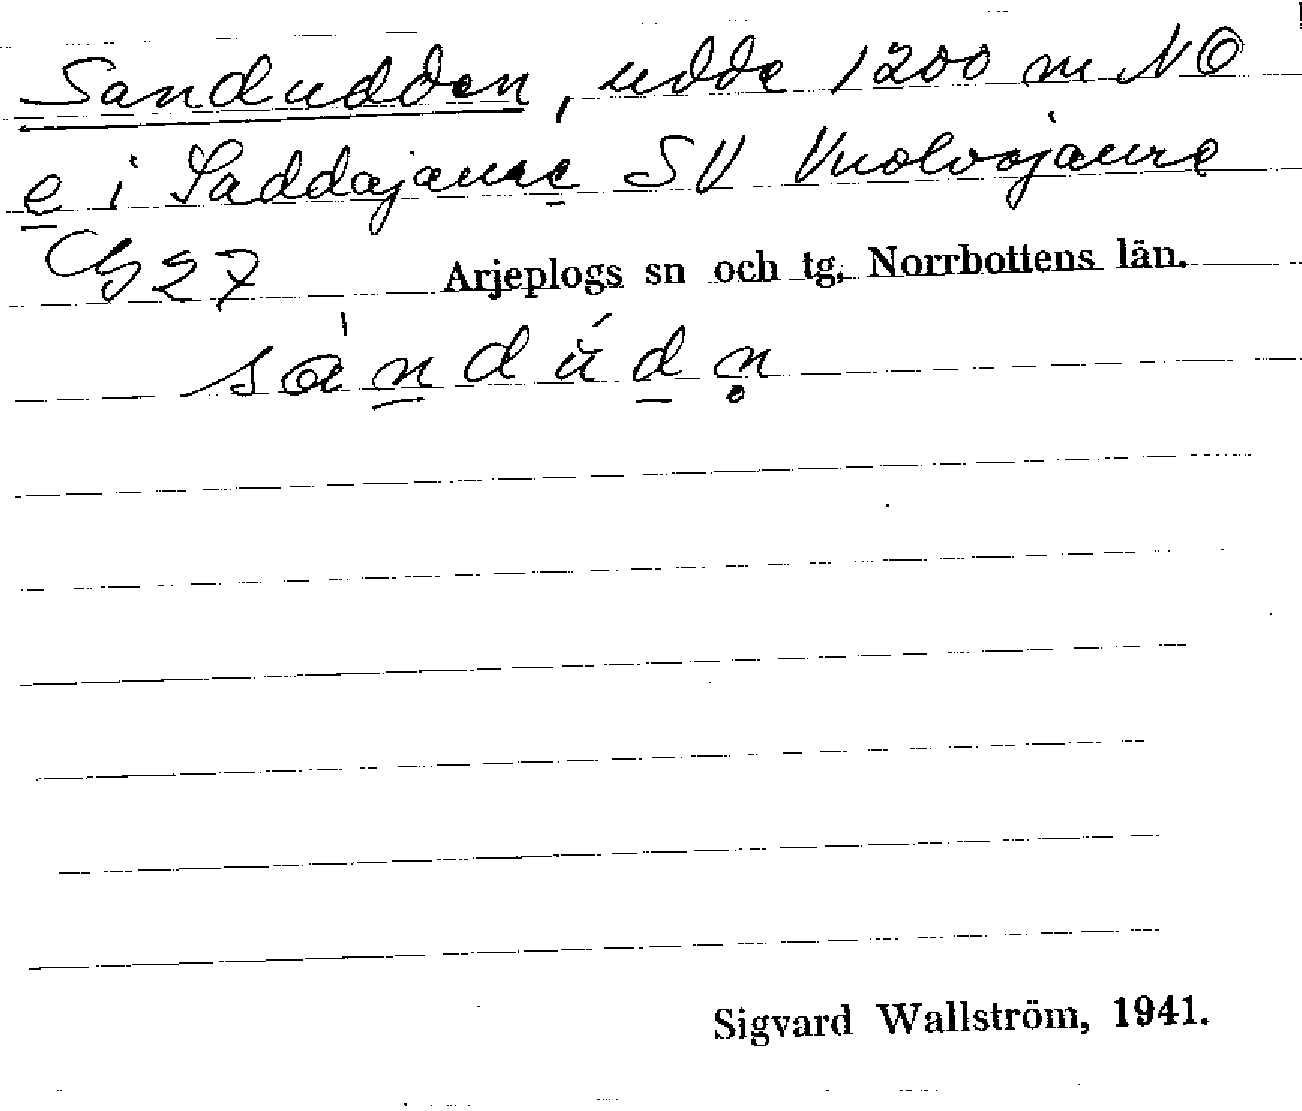 Sandudden, udde 1200 m NO
e i Saddajaure SV Vuolvojaure
G27 Arjeplogs sn och tg, Norrbottens län.
Sigvard Wallström, 1941.